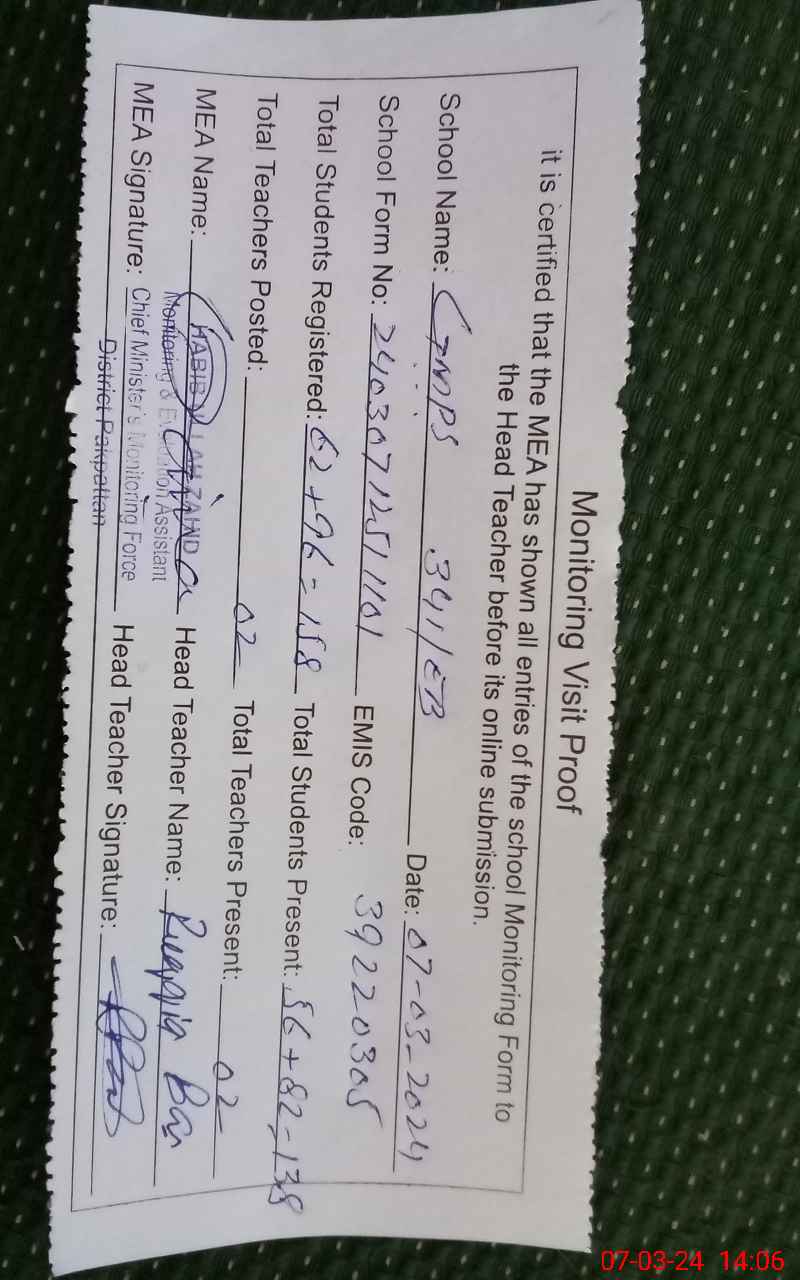 Monitoring Visit Proof
it is certified that the MEA has shown all entries of the school Monitoring Form to
the Head Teacher before its online submission.
School Name: GMPS 341/EB Date: 07-03-2024
School Form No: 24030712511101 EMIS Code: 39220305
Total Students Registered: 62+96=158 Total Students Present: 56+82=138
Total Teachers Posted: 02 Total Teachers Present: 02
MEA Name: HABIB Head Teacher Name: Ruqqia
Monitoring & Evaluation Assistant
MEA Signature: Chief Minister's Monitoring Force Head Teacher Signature:
District Pakpattan
07-03-24 14:06